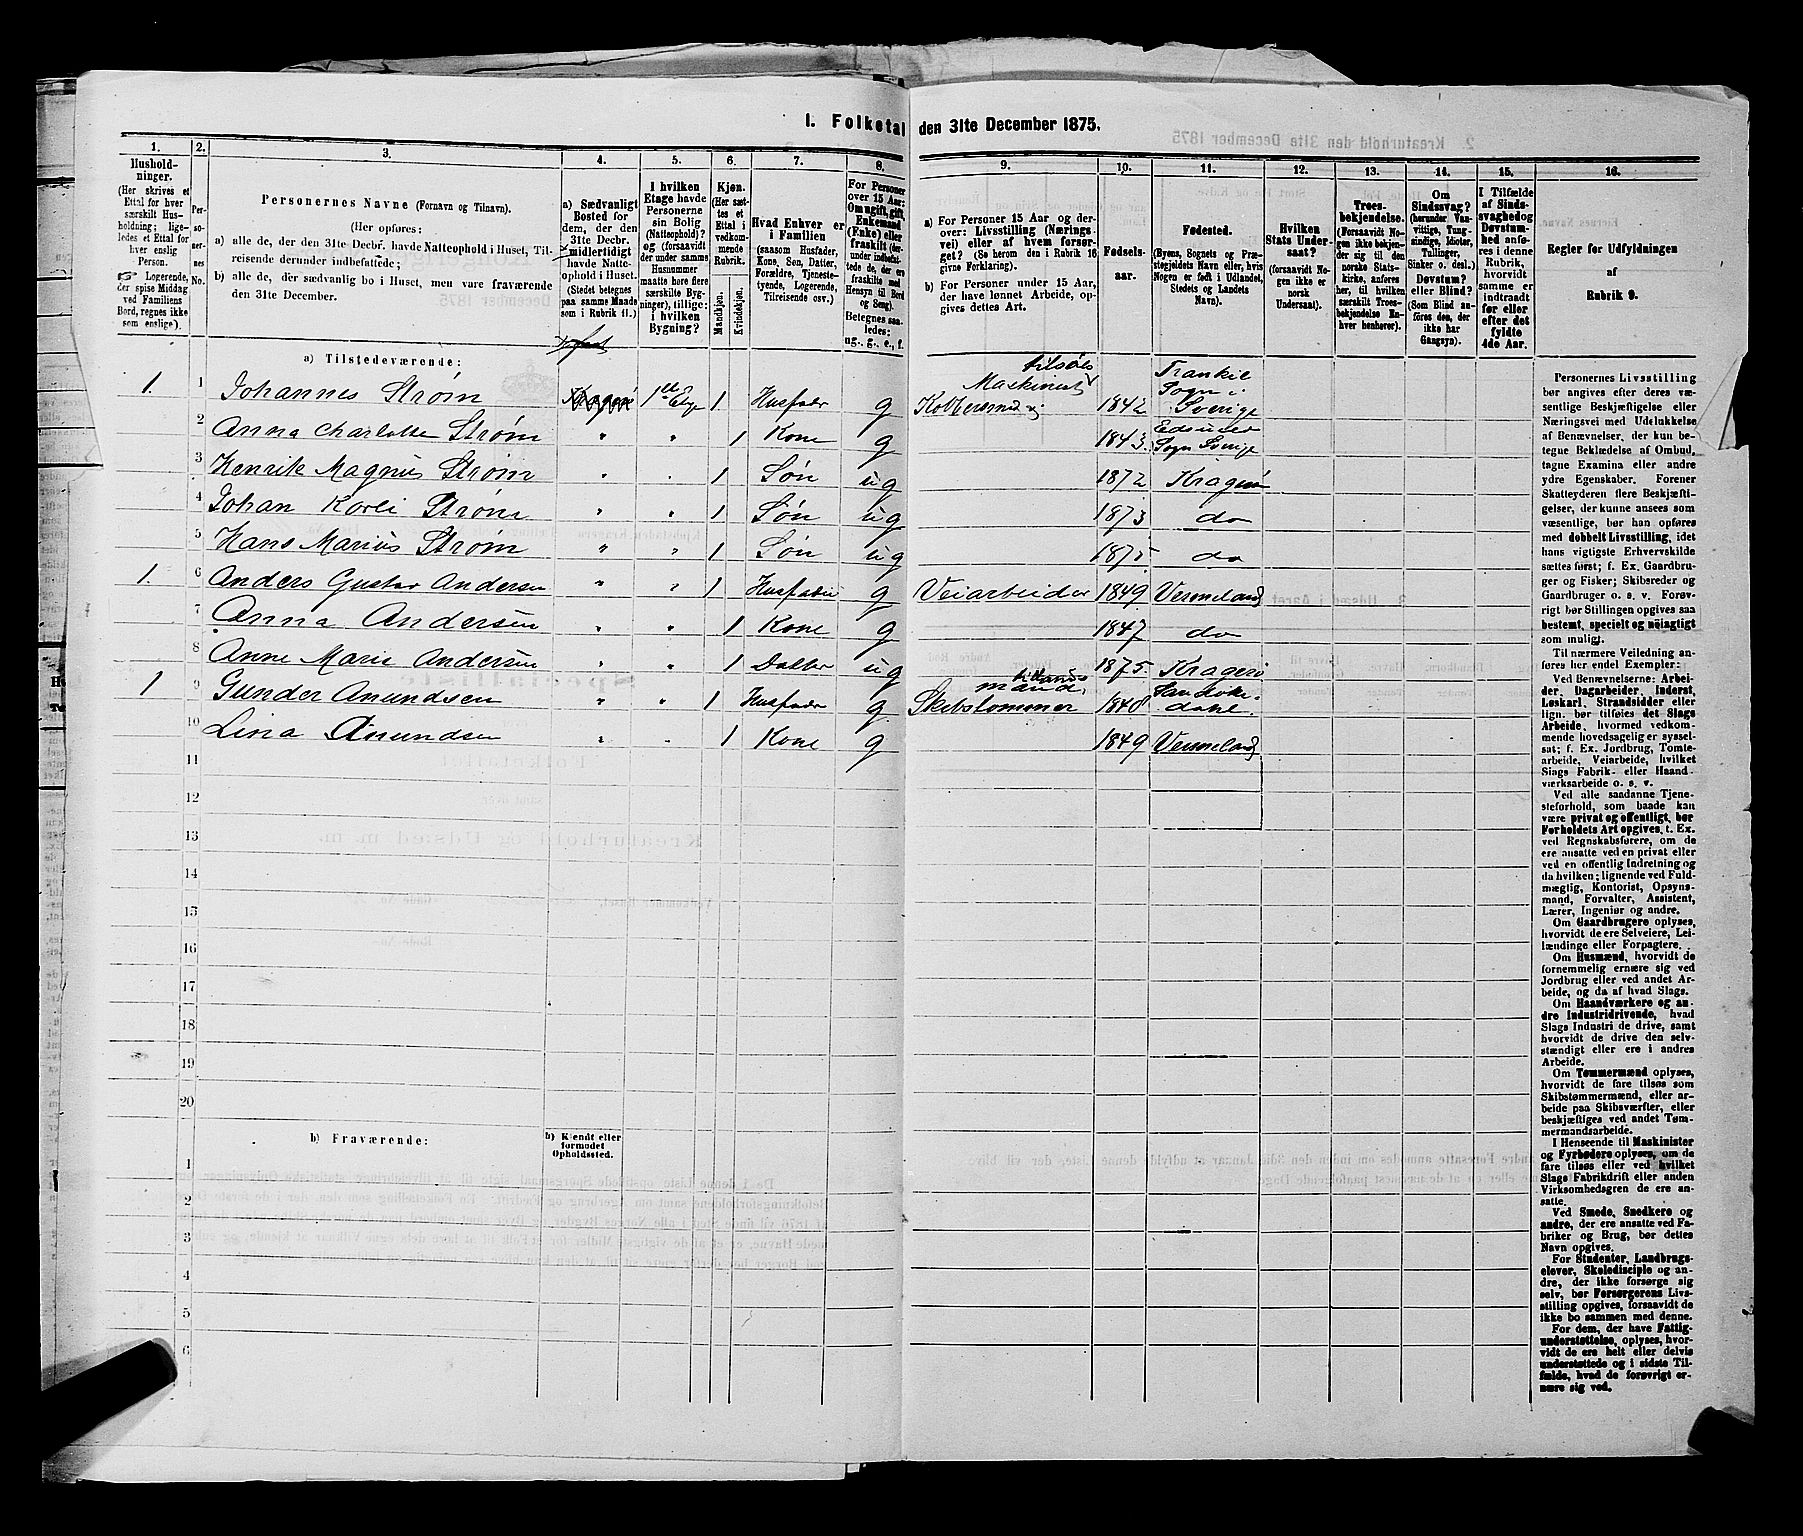 I. Folketal den 31te December 1875.
1. 2. 3. 4. 5. 6. 7. 8. 9. 10. 11. 12. 13. 14. 15. 16.
Hushold-
ninger.
(Her skrives et
Ettal for hver
særskilt Hus-
holdning; lige-
ledes et Ettal for
hver enslig
Person.
☞ Logerende,
der spise Middag
ved Familiens
Bord, regnes ikke
som enslige).
Per-
so-
ner-
nes
No.
Personernes Navne (Fornavn og Tilnavn).
(Her opføres:
a) alle de, der den 31te Decbr. havde Natteophold i Huset, Til-
reisende derunder indbefattede;
b) alle de, der sædvanlig bo i Huset, men vare fraværende
den 31te December.
a) Sædvanligt
Bosted for
dem, der den
31te Decbr.
midlertidigt
havde Natte-
ophold i Huset.
(Stedet betegnes
paa samme Maade
som i Rubrik 11.)
I hvilken
Etage havde
Personerne
sin Bolig
(Natteophold)?
og (forsaavidt
der under samme
Husnummer
maatte høre flere
særskilte Byg-
ninger), tillige:
i hvilken
Bygning?
Kjøn.
(Her sæt-
tes et
Ettal i
vedkom-
mende
Rubrik.
Mandkjøn.
Kvindekjøn.
Hvad Enhver er
i Familien
(saasom Husfader,
Kone, Søn, Datter,
Forældre, Tjeneste-
tyende, Logerende,
Tilreisende osv.)
For Personer
over 15 Aar:
Om ugift, gift,
Enkemand
(Enke) eller
fraskilt (der-
under indbefat-
tede de, der ere
fraskilte med
Hensyn til Bord
og Seng).
Betegnes saa-
ledes:
ug., g., e., f.
a) For Personer 15 Aar og der-
over: Livsstilling (Nærings-
vei) eller af hvem forsør-
get? (Se herom den i Rubrik 16
givne Forklaring).
b) For Personer under 15 Aar,
der have lønnet Arbeide, op-
gives dettes Art.
Fødsels-
aar.
Fødested.
(Byens, Sognets og Præ-
stegjeldets Navn eller, hvis
Nogen er født i Udlandet,
Stedets og Landets
Navn).
Hvilken
Stats Under-
saat?
(forsaavidt No-
gen ikke er
norsk
Undersaat).
Troes-
bekjendelse.
(Forsaavidt No-
gen ikke bekjen-
der sig til den
norske Stats-
kirke, anføres
her, til hvilken
særskilt Troes-
bekjendelse En-
hver henhører).
Om
Sindssvag?
(herunder Van-
vittige, Tung-
sindige, Idioter,
Tullinger,
Sinker o. desl.)
Døvstum?
eller Blind?
(Som Blind an-
føres den, der
ikke har
Gangsyn).
I Tilfælde
af Sinds-
svaghed og
Døvstum-
hed anfø-
res i denne
Rubrik,
hvorvidt
samme er
indtraadt
før eller
efter det
fyldte
4de Aar.
Regler for Udfyldningen
af
Rubrik 9.
a) Tilstedeværende:
1. 1 Johannes Strøm 1 Husfader g Maskinist tilsøs 1842 Trankil Sogn i Sverige
2 Anna Charlotte Strøm " " 1 Kone g 1843 Sogn Sverige
3 Henrik Magnus Strøm " " 1 Søn ug 1872 Kragerø
4 Johan Karli Strøm " " 1 Søn ug 1873 do
5 Hans Marius Strøm " " 1 Søn ug 1875 do
1. 6 Anders Gustav Andersen " " 1 Husfader g Veiarbeider 1849 Vermeland
7 Anna Andersen " " 1 Kone g 1847 do
8 Anne Marie Andersen " " 1 Datter ug 1875 Kragerø
1 9 Gunder Anundsen " " 1 Husfader g Skibstømmermand 1840 Sandøkedahl.
10 Lina Anundsen " " 1 Kone g 1849 Vermeland
11
12
13
14
15
16
17
18
19
20
b) Fraværende:
b) Kjendt eller
formodet
Opholdssted.
1
2
3
4
5
6
Personernes Livsstilling
bør angives efter deres væ-
sentlige Beskjæftigelse eller
Næringsvei med Udelukkelse
af Benævnelser, der kun be-
tegne Beklædelse af Ombud,
tagne Examina eller andre
ydre Egenskaber. Forener
Skatteyderen flere Beskjæfti-
gelser, der kunne ansees som
væsentlige, bør han opføres
med dobbelt Livsstilling, idet
hans vigtigste Erhvervskilde
sættes først; f. Ex. Gaardbru-
ger og Fisker; Skibsreder og
Gaardbruger o. s. v. Forøv-
rigt bør Stillingen opgives saa
bestemt, specielt og nøiagtigt
som muligt.
Til nærmere Veiledning an-
føres her endel Exempler:
Ved Benævnelserne: Arbei-
der, Dagarbeider, Inderst,
Løskarl, Strandsidder eller
lign. bør tilføies det Slags
Arbeide, hvormed vedkom-
mende hovedsagelig er syssel-
sat; f. Ex. Jordbrug, Tomte-
arbeide, Veiarbeide, hvilket
Slags Fabrik- eller Haand-
værksarbeide o. s. v.
Ved alle saadanne Tjene-
steforhold, som baade kan
være privat og offentlig, bør
Forholdets Art opgives, t. Ex.
ved Regnskabsførere, om de
ere ansatte ved en privat eller
ved en offentlig Indretning og
da hvilken; lignende ved Fuld-
mægtig, Kontorist, Opsyns-
mand, Forvalter, Assistent,
Lærer, Ingeniør og andre.
Om Gaardbrugere oplyses,
hvorvidt de ere Selveiere, Lei-
lændinge eller Forpagtere.
Om Husmænd, hvorvidt de
fornemmelig ernære sig ved
Jordbrug eller ved andet Ar-
beide, og da af hvad Slags.
Om Haandværkere og an-
dre Industridrivende, hvad
Slags Industri de drive, samt
hvorvidt de drive den selv-
stændigt eller ere i andres
Arbeide.
Om Tømmermænd oplyses,
hvorvidt de fare tilsøs som
Skibstømmermænd, eller ar-
beide paa Skibsværfter, eller
beskjæftiges ved andet Tøm-
mermandsarbeide.
I Henseende til Maskinister
og Fyrbødere oplyses, om de
fare tilsøs eller ved hvilket
Slags Fabrikdrift eller anden
Virksomhedsgren de ere an-
satte.
Ved Smede, Snedkere og
andre, der ere ansatte ved Fa-
briker og Brug, bør dettes
Navn opgives.
For Studenter, Landbrugs-
elever, Skoledisciple og an-
dre, der ikke forsørge sig
selv, bør Forsørgerens Livs-
stilling opgives, forsaavidt de
ikke bo sammen med denne.
For dem, der have Fattig-
understøttelse, oplyses, hvor-
vidt de ere helt eller delvis
understøttede og i sidste Til-
fælde, hvad de forøvrigt er-
nære sig ved.